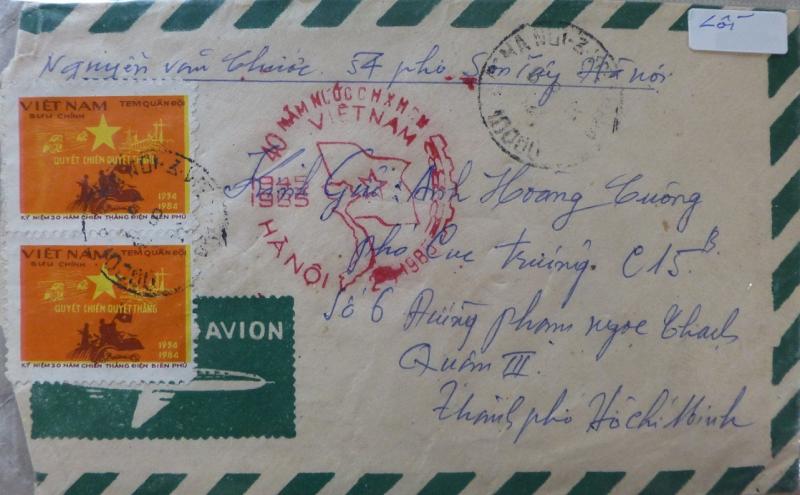 Lỗi
Nguyễn văn Chước 54 phố Sơn Tây Hà nội
VIỆT NAM TEM QUÂN ĐỘI
BƯU CHÍNH
QUYẾT CHIẾN QUYẾT THẮNG
1954
1984
KỶ NIỆM 30 NĂM CHIẾN THẮNG ĐIỆN BIÊN PHỦ
VIỆT NAM TEM QUÂN ĐỘI
BƯU CHÍNH
QUYẾT CHIẾN QUYẾT THẮNG
1954
1984
KỶ NIỆM 30 NĂM CHIẾN THẮNG ĐIỆN BIÊN PHỦ
40 NĂM NƯỚC CHXHCN
VIỆTNAM
1945
1985
HÀNỘI
HA NOI
10000
Kính Gửi: Anh Hoàng Cường
phó Cục trưởng C15B
Số 6 Đường phạm ngọc Thạch
Quận III
Thành phố Hồ chí Minh
AVION